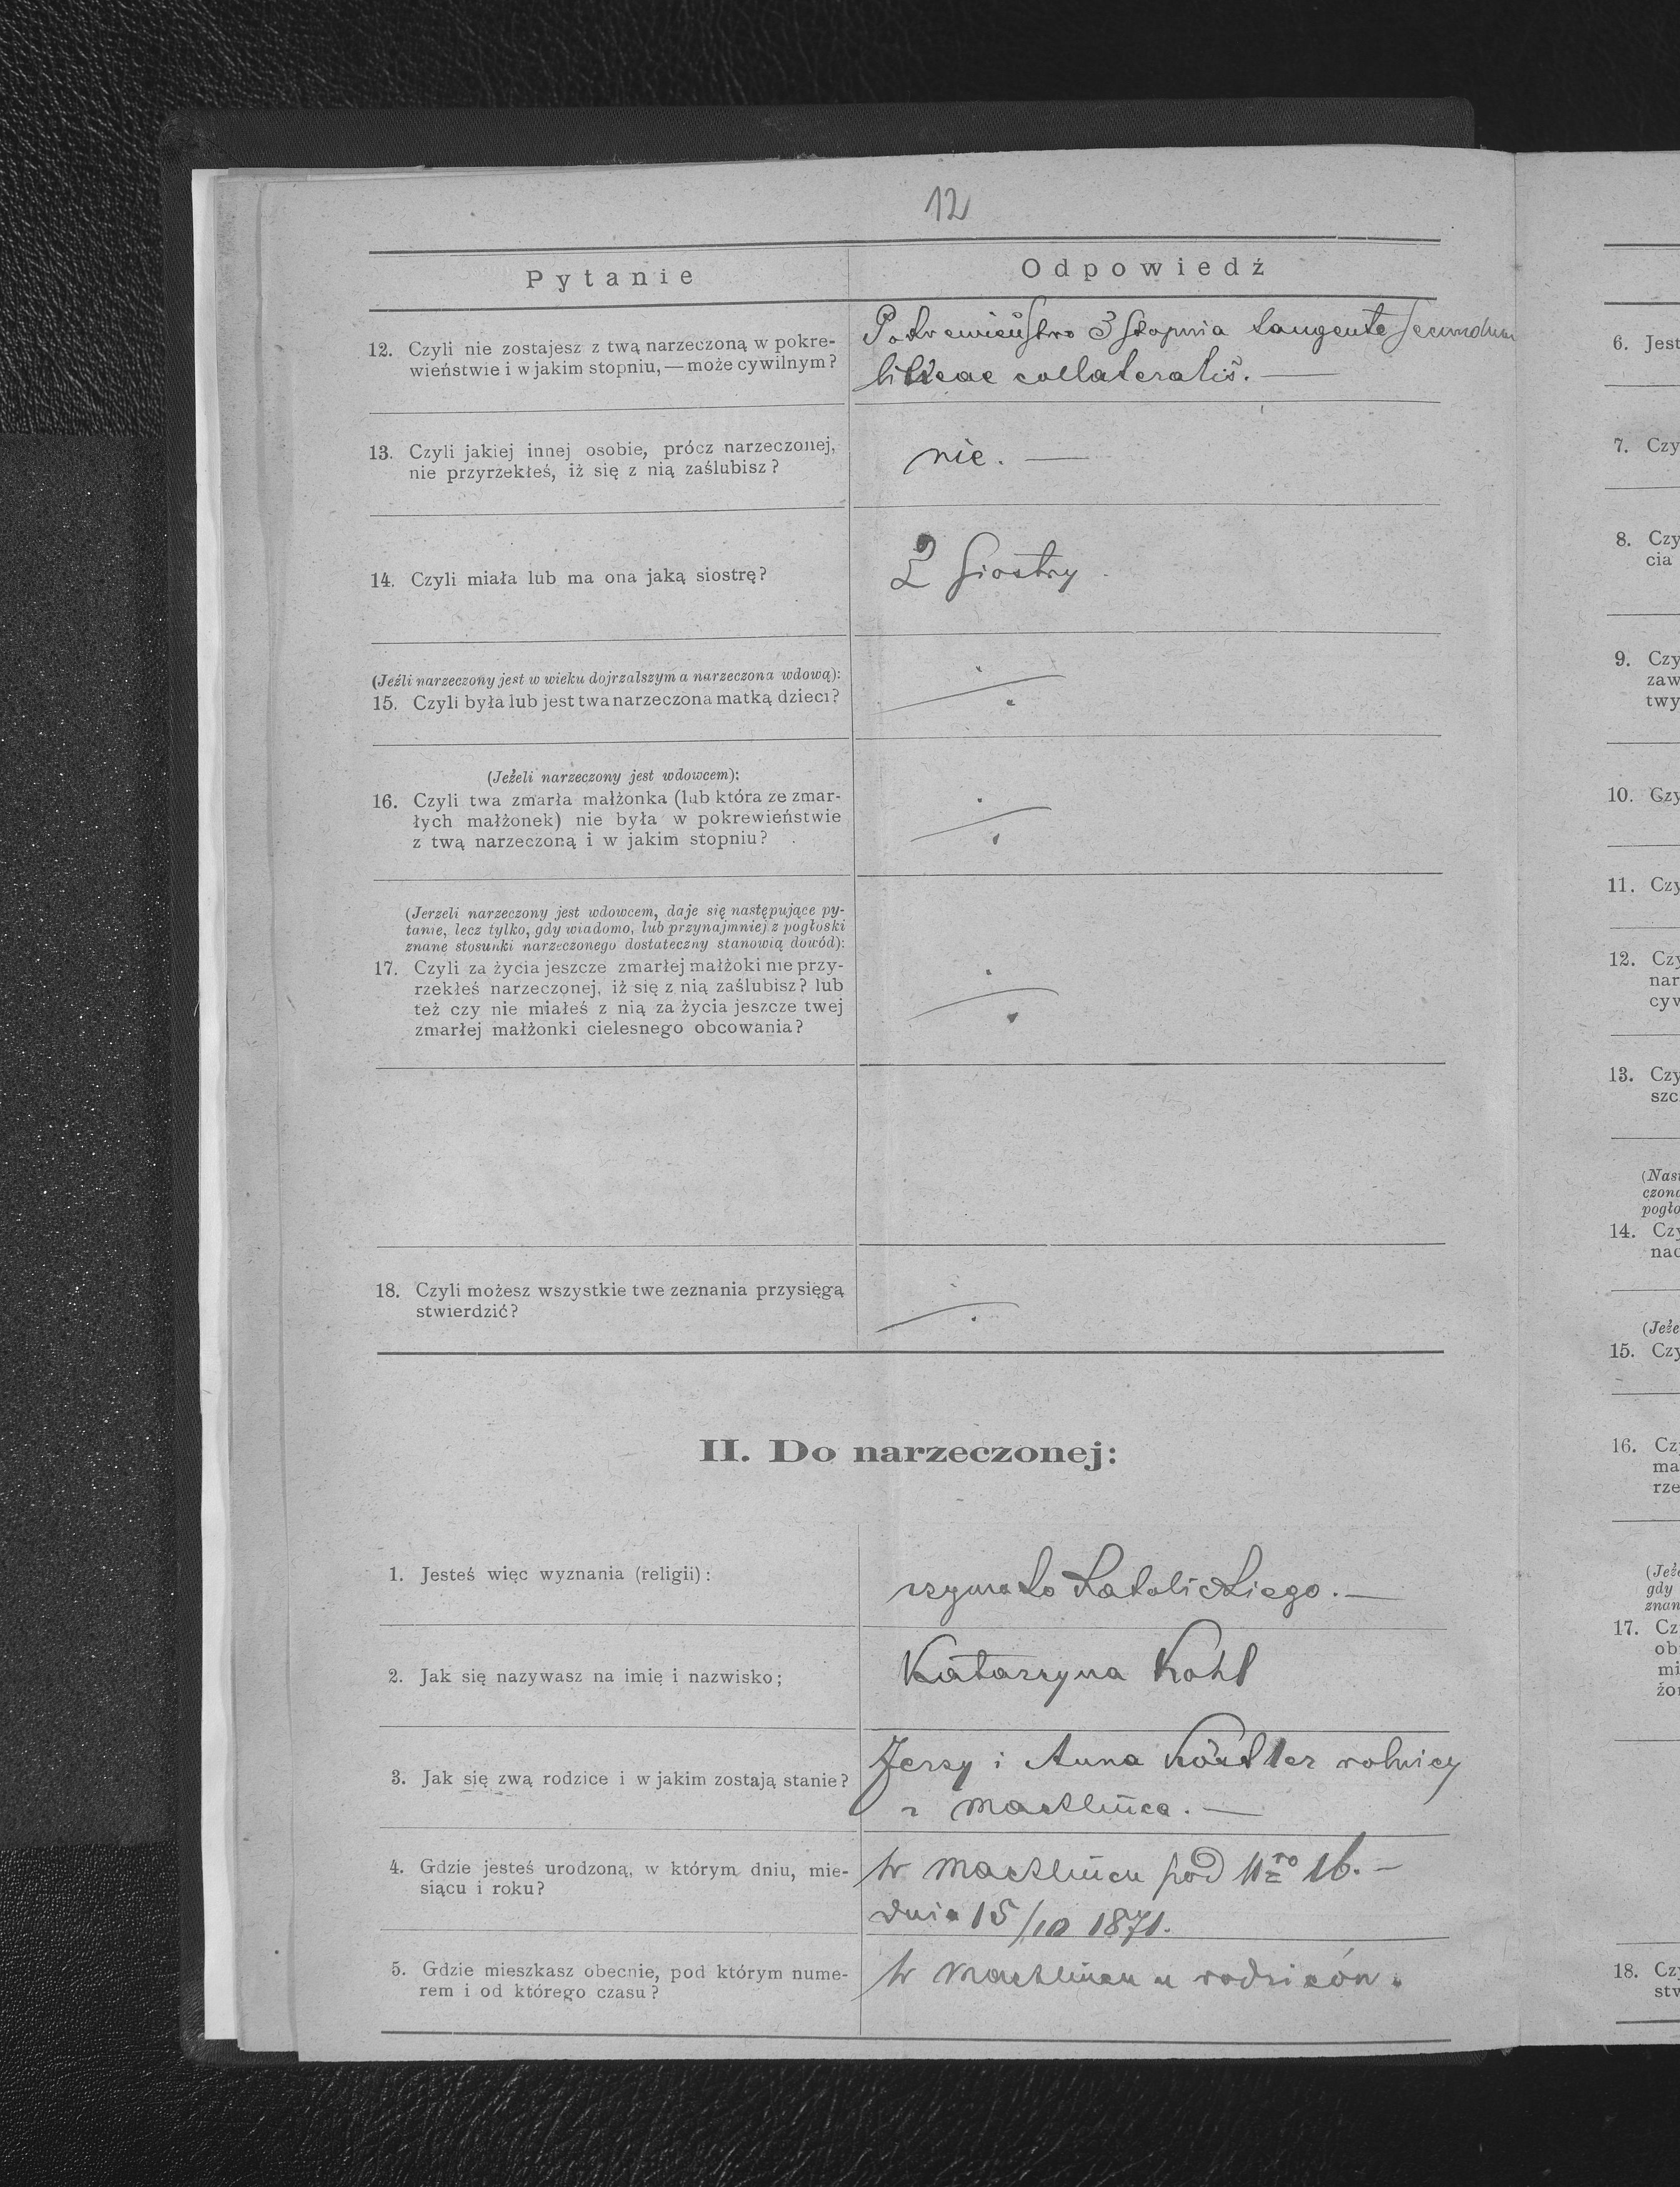 12
Pytanie
Odpowiedź
12. Czyli nie zostajesz z twą narzeczoną w pokre-
wieństwie i w jakim stopniu, — może cywilnym?
Pokrewieństwo 3 stopnia tangente secundum
lineae collateralis. —
13. Czyli jakiej innej osobie, prócz narzeczonej,
nie przyrzekłeś, iż się z nią zaślubisz?
nie. —
14. Czyli miała lub ma ona jaką siostrę?
2 siostry
(Jeźli narzeczony jest w wieku dojrzalszym a narzeczona wdową):
15. Czyli była lub jest twa narzeczona matką dzieci?
(Jeżeli narzeczony jest wdowcem):
16. Czyli twa zmarła małżonka (lub która ze zmar-
łych małżonek) nie była w pokrewieństwie
z twą narzeczoną i w jakim stopniu?
(Jerzeli narzeczony jest wdowcem, daje się następujące py-
tanie, lecz tylko, gdy wiadomo, lub przynajmniej z pogłoski
znane stosunki narzeczonego dostateczny stanowią dowód):
17. Czyli za życia jeszcze zmarłej małżoki nie przy-
rzekłeś narzeczonej, iż się z nią zaślubisz? lub
też czy nie miałeś z nią za życia jeszcze twej
zmarłej małżonki cielesnego obcowania?
18. Czyli możesz wszystkie twe zeznania przysięgą
stwierdzić?
II. Do narzeczonej:
1. Jesteś więc wyznania (religii):
rzymsko katolickiego. —
2. Jak się nazywasz na imię i nazwisko;
Katarzyna Kohl
3. Jak się zwą rodzice i w jakim zostają stanie?
Jerzy i Anna rolnicy
z Machlińca. —
4. Gdzie jesteś urodzoną, w którym dniu, mie-
siącu i roku?
w Machlińcu pod Nro 16. —
dnia 15/10 1871.
5. Gdzie mieszkasz obecnie, pod którym nume-
rem i od którego czasu?
w Machlińcu u rodziców.
6. Jest
7. Czy
8. Czy
cia
9. Czy
zaw
twy
10. Czy
11. Czy
12. Czy
nar
cyw
13. Czy
szc
(Nast
czona
pogło
14. Czy
nac
(Jeże
15. Czy
16. Cz
ma
rze
(Jeże
gdy
znan
17. Cz
ob
mi
żon
18. Czy
stw